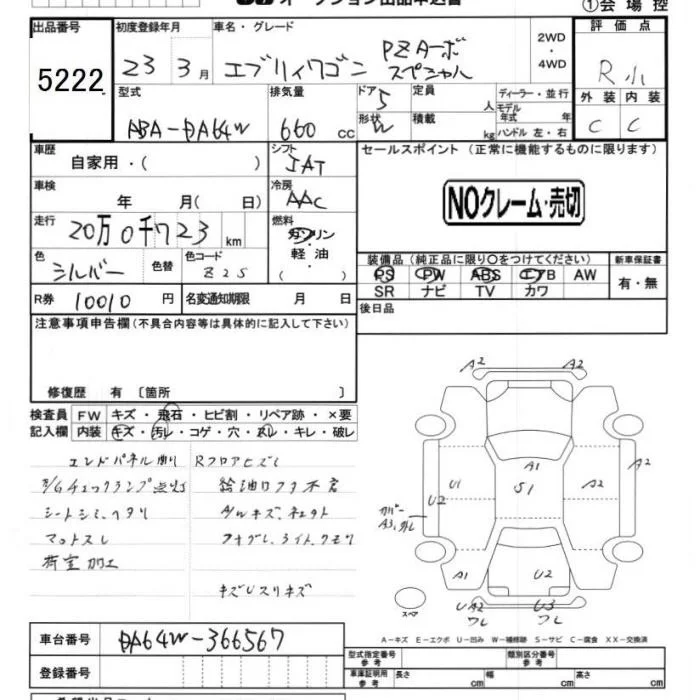 オークション出品申込書
①会場控
出品番号
5222
初度登録年月
23 3月
車名・グレード
エブリィワゴン
PZターボ
スペシャル
2WD
・
4WD
評価点
R小
外装 内装
C C
型式
ABA-DA64W
排気量
660 cc
ドア
5
形状
W
定員
人
積載
kg
ディーラー・並行
モデル
年式 年
ハンドル 左・右
車歴
自家用・( )
シフト
5AT
セールスポイント (正常に機能するものに限ります)
NOクレーム・売切
車検
年 月( 日)
冷房
AAC
走行
20万0千723 km
燃料
ガソリン
軽油
( )
色
シルバー
色替
色コード
Z2S
装備品 (純正品に限り○をつけてください)
PS PW ABS エアB AW
SR ナビ TV カワ
新車保証書
有・無
R券 10010 円
名変通知期限 月 日
後日品
注意事項申告欄(不具合内容等は具体的に記入して下さい)
修復歴 有 〔箇所 〕
検査員 FW キズ・飛石・ヒビ割・リペア跡・×要
記入欄 内装 キズ・汚レ・コゲ・穴・スレ・キレ・破レ
エンドパネル曲り Rフロアヒズミ
チェックランプ点灯
シートシミ、ヘタリ
マットスレ
荷室加工
キズUスリキズ
A2 A2
A2 A2
A1
U1 S1 A2
U2
カバー
A3、ワレ
A1 U2
UA2 U3
ワレ ワレ
スペア
A-キズ E-エクボ U-凹み W-補修跡 S-サビ C-腐食 XX-交換済
車台番号 DA64W-366567
登録番号
型式指定番号
参考
類別区分番号
参考
車庫証明用
参考
長さ cm 幅 cm 高さ cm